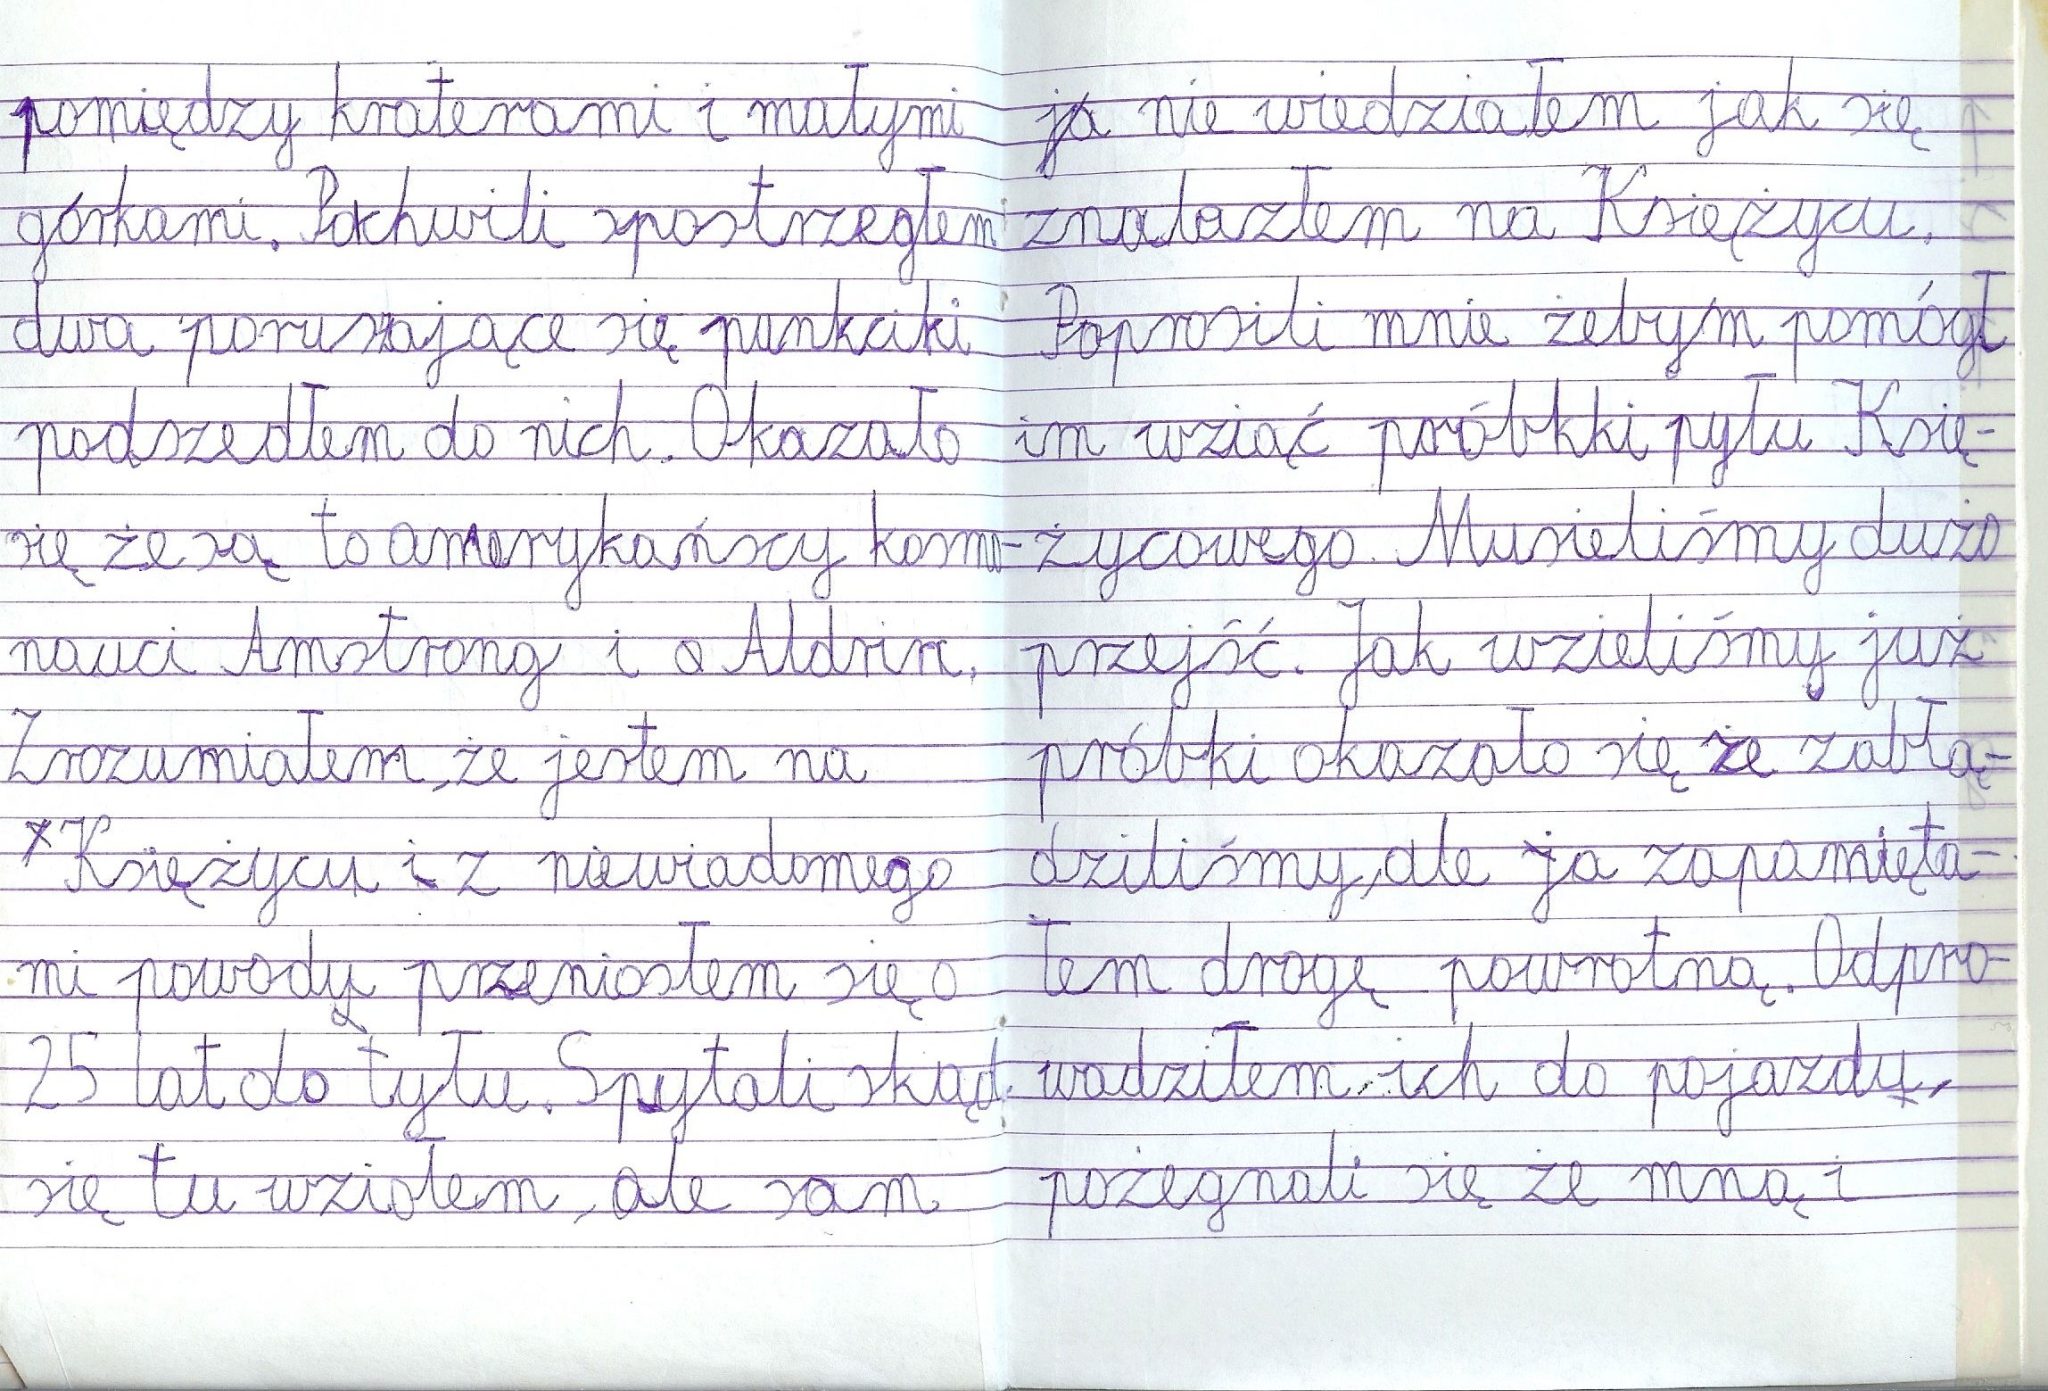 pomiędzy kraterami i małymi
górkami. Po chwili spostrzegłem
dwa poruszające się punkciki
podszedłem do nich. Okazało
się że są to amerykańscy kosmo-
nauci Amstrong i Aldrin.
Zrozumiałem, że jestem na
Księżycu i z niewiadomego
mi powodu przeniosłem się o
25 lat do tyłu. Spytali skąd
się tu wziołem, ale sam
ja nie wiedziałem jak się
znalazłem na Księżycu.
Poprosili mnie żebym pomógł
im wziąć próbkki pyłu Księ-
życowego. Musieliśmy dużo
przejść. Jak wzieliśmy już
próbki okazało się że zabłą-
dziliśmy, ale ja zapamięta-
łem drogę powrotną. Odpro-
wadziłem ich do pojazdu,
pożegnali się że mną i